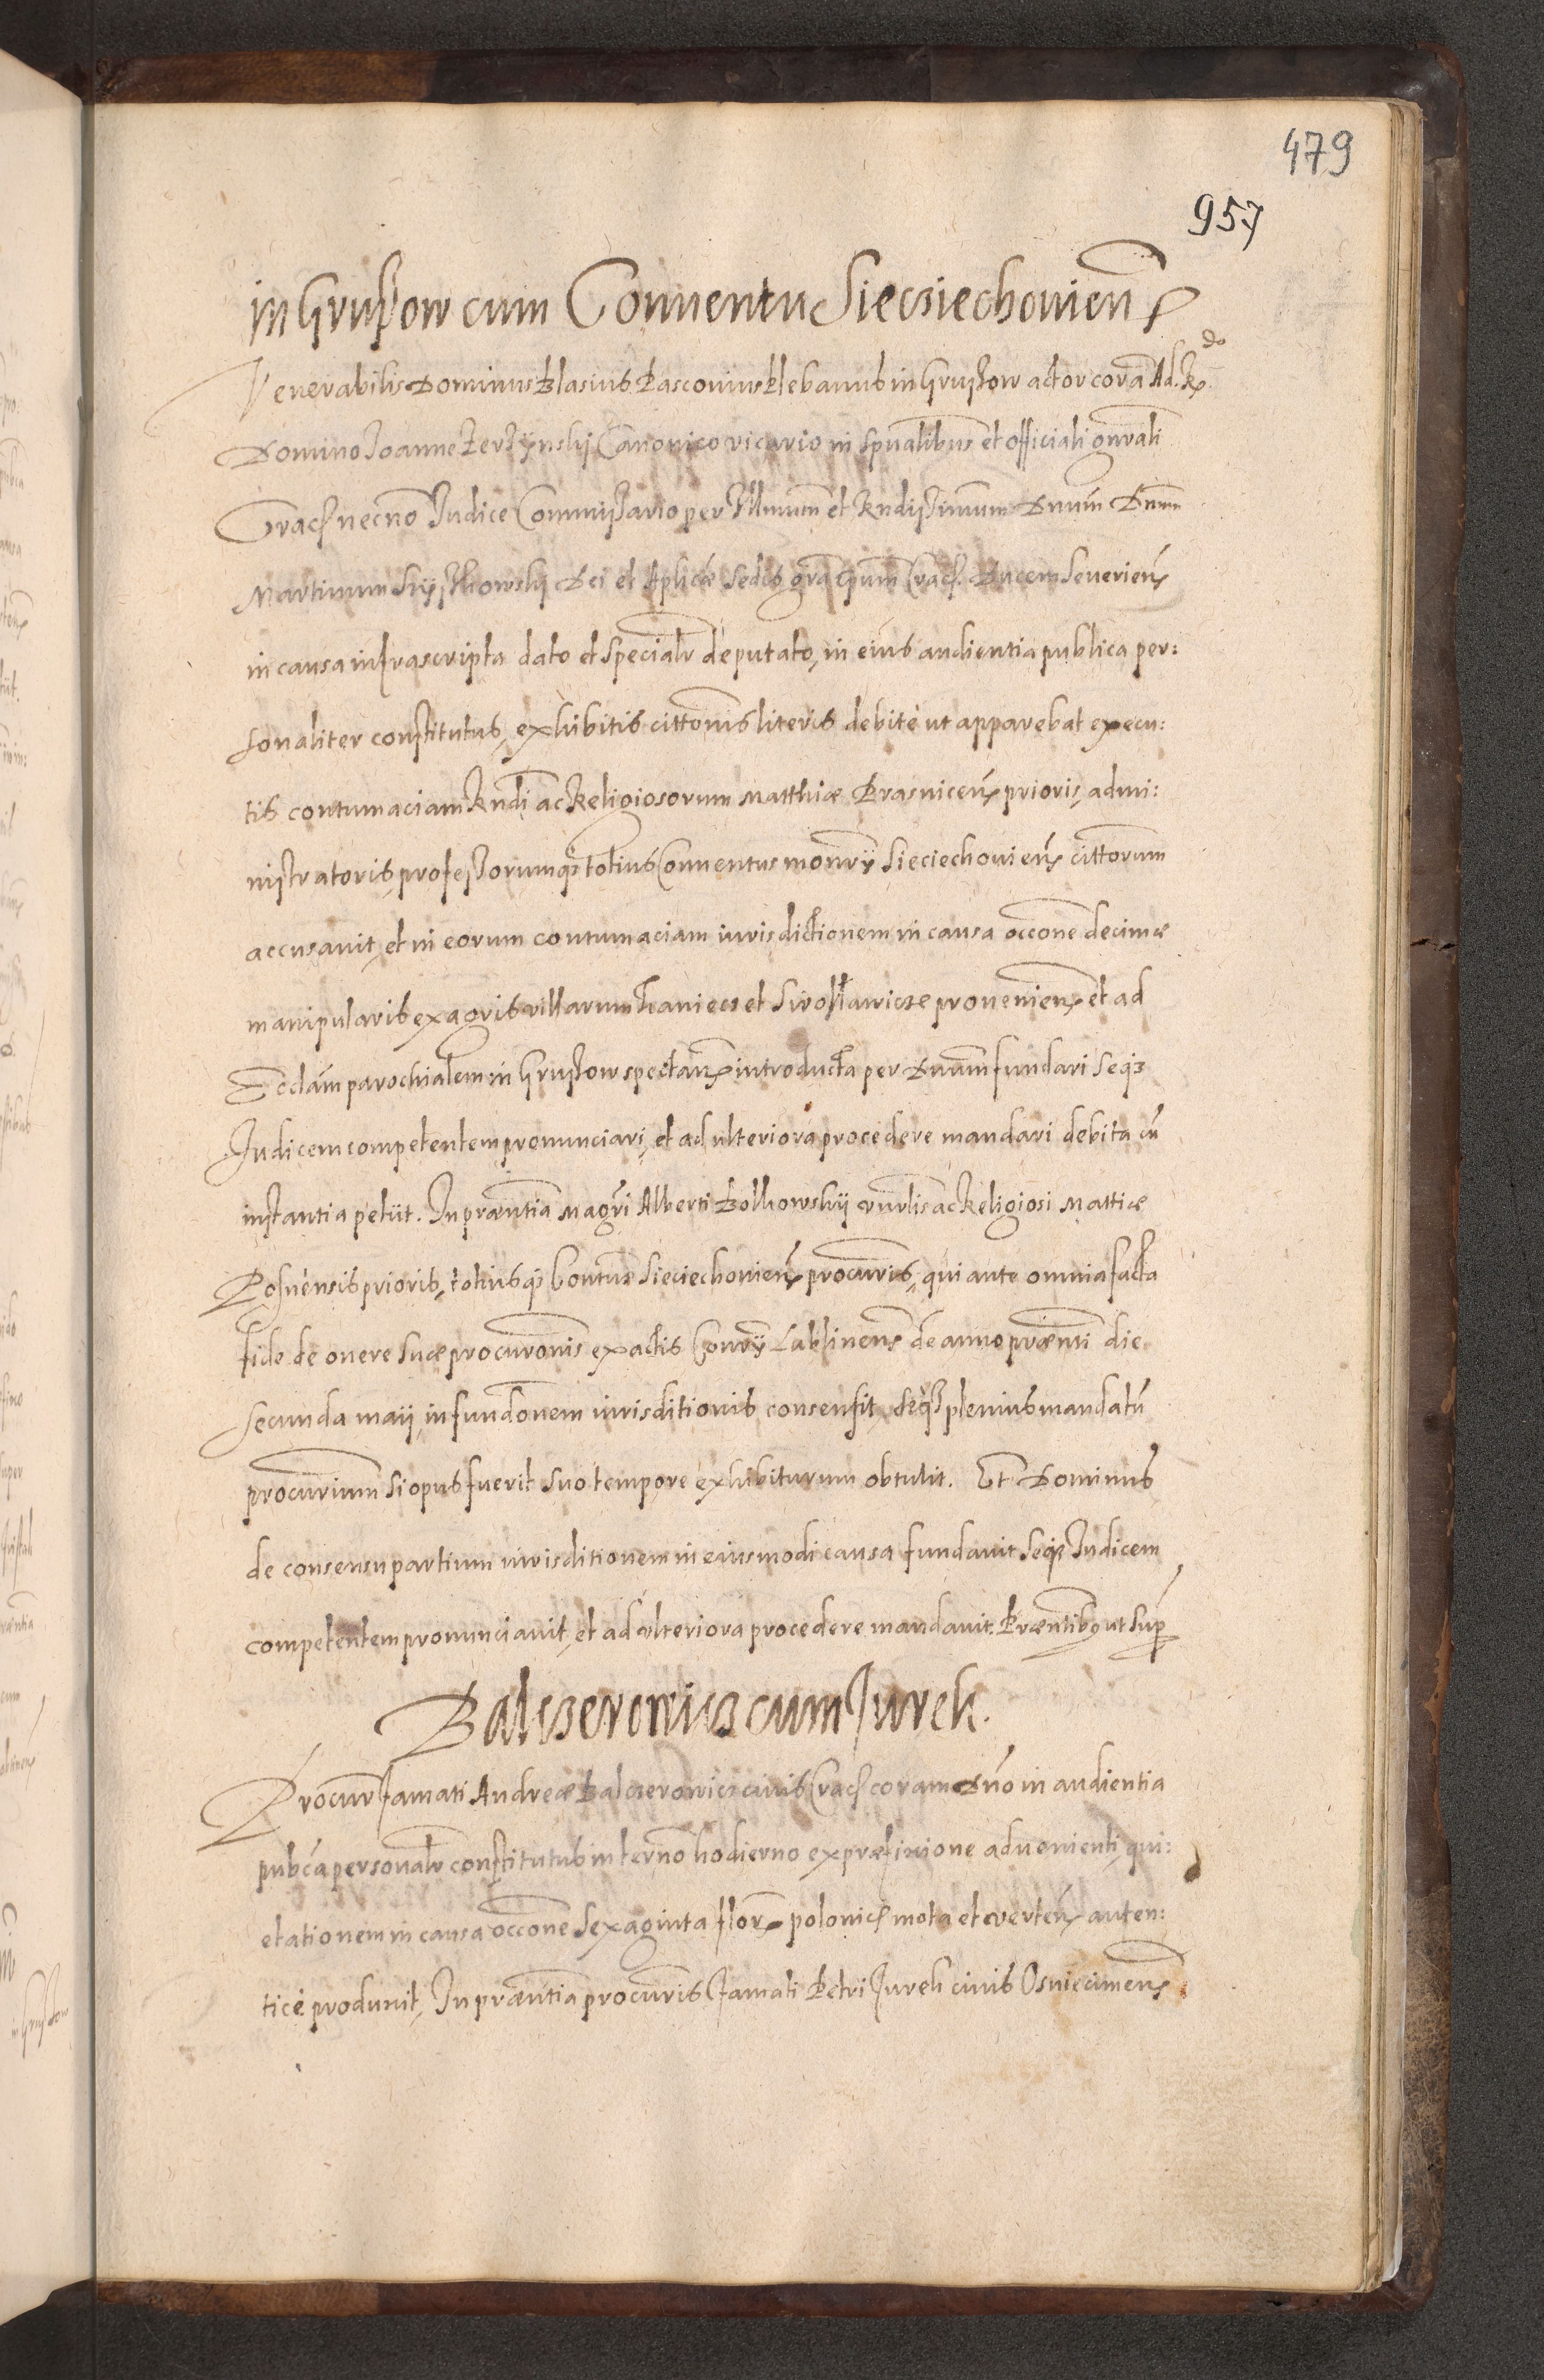 479
957
in Grussow cum Conuentu Siecziechouien
Venerabilis Dominus Blasius Pasconius Plebanus in Grussow actor corā Ad. R. do
Domino Joanne Zerzynskij Canonico vicario in spūalibus et officiali gnrāli
Crac necnō Judice Commissario per Illmum et Rndissimum Dnum Dnum
Martinum Szyszkowskij Dei et Aplicæ Sedis grā Epum Crac. Ducem Seuerien
in causa infrascripta dato et specialr deputato, in eius audientia publica per:
sonaliter constitutus, exhibitis cittonis literis debitè ut apparebat execu:
tis contumaciam Rndi ac Religiosorum Matthiæ Prasnicen prioris, admi:
nistratoris, professorumq totius Conuentus monrij Sieciechouien cittorum
accusauit, et in eorum contumaciam iurisdictionem in causa occone decimæ
manipularis ex agris villarum Haniecz et Siroslawicze prouenien et ad
Ecclam parochialem in Grussow spectan introducta per Dnum fundari seq
Judicem competentem pronunciari, et ad ulteriora procedere mandari debita cū
instantia petiit. In præntia Magri Alberti Bolhowskij vurlis ac Religiosi Mattiæ
Posnensis prioris, totiusq Contus Sieciechouien procuris, qui ante omnia facta
fide de onere suæ procuronis ex actis Conrij Lublinens de anno prænti die
secunda maij, in fundonem iurisditionis consensit, seq plenius mandatū
procurium si opus fuerit suo tempore exhibiturum obtulit. Et Dominus
de consensu partium iurisditionem in eiusmodi causa fundauit seq Judicem
competentem pronunciauit, et ad ulteriora procedere mandauit. Præntibq ut sup
Balczerowicz cum Jurek.
Procur famati Andreæ Balczerowicz ciuis Crac coram Dno in audientia
pubca personalr constitutus in terno hodierno ex præfixione aduenienti, qui:
etationem in causa occone sexaginta flor polonic mota et verten auten:
ticè produxit, In præntia procuris famati Petri Jurek ciuis Osuiecimens